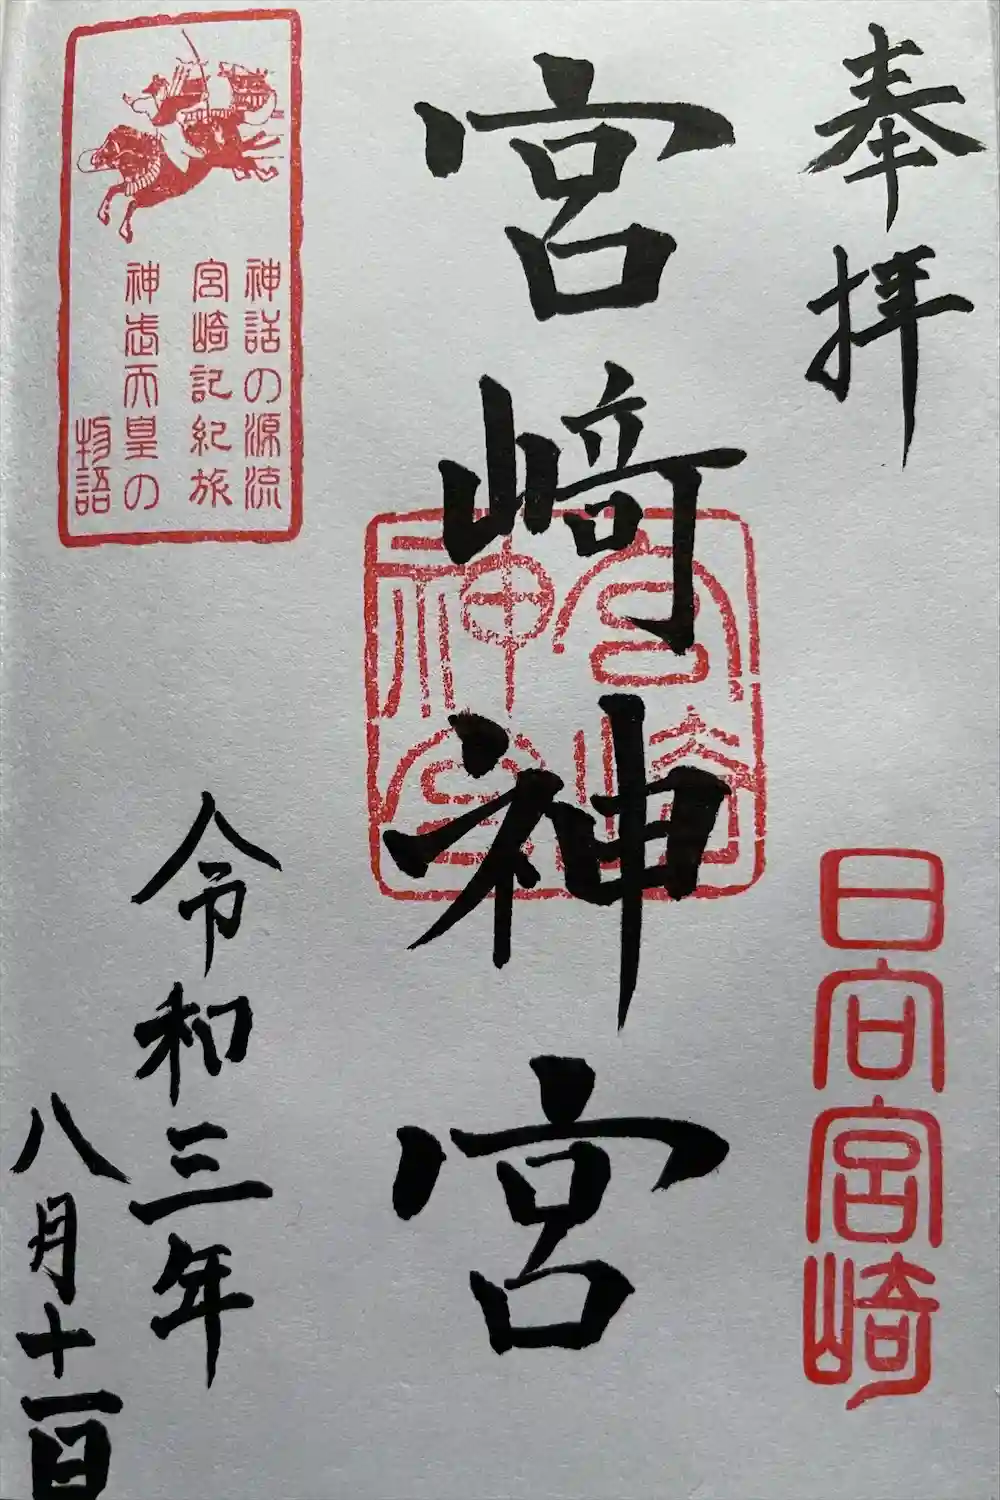 奉拝
日向宮崎
宮﨑神宮
宮崎神宮
令和三年
八月十一日
神話の源流
宮崎記紀旅
神武天皇の
物語